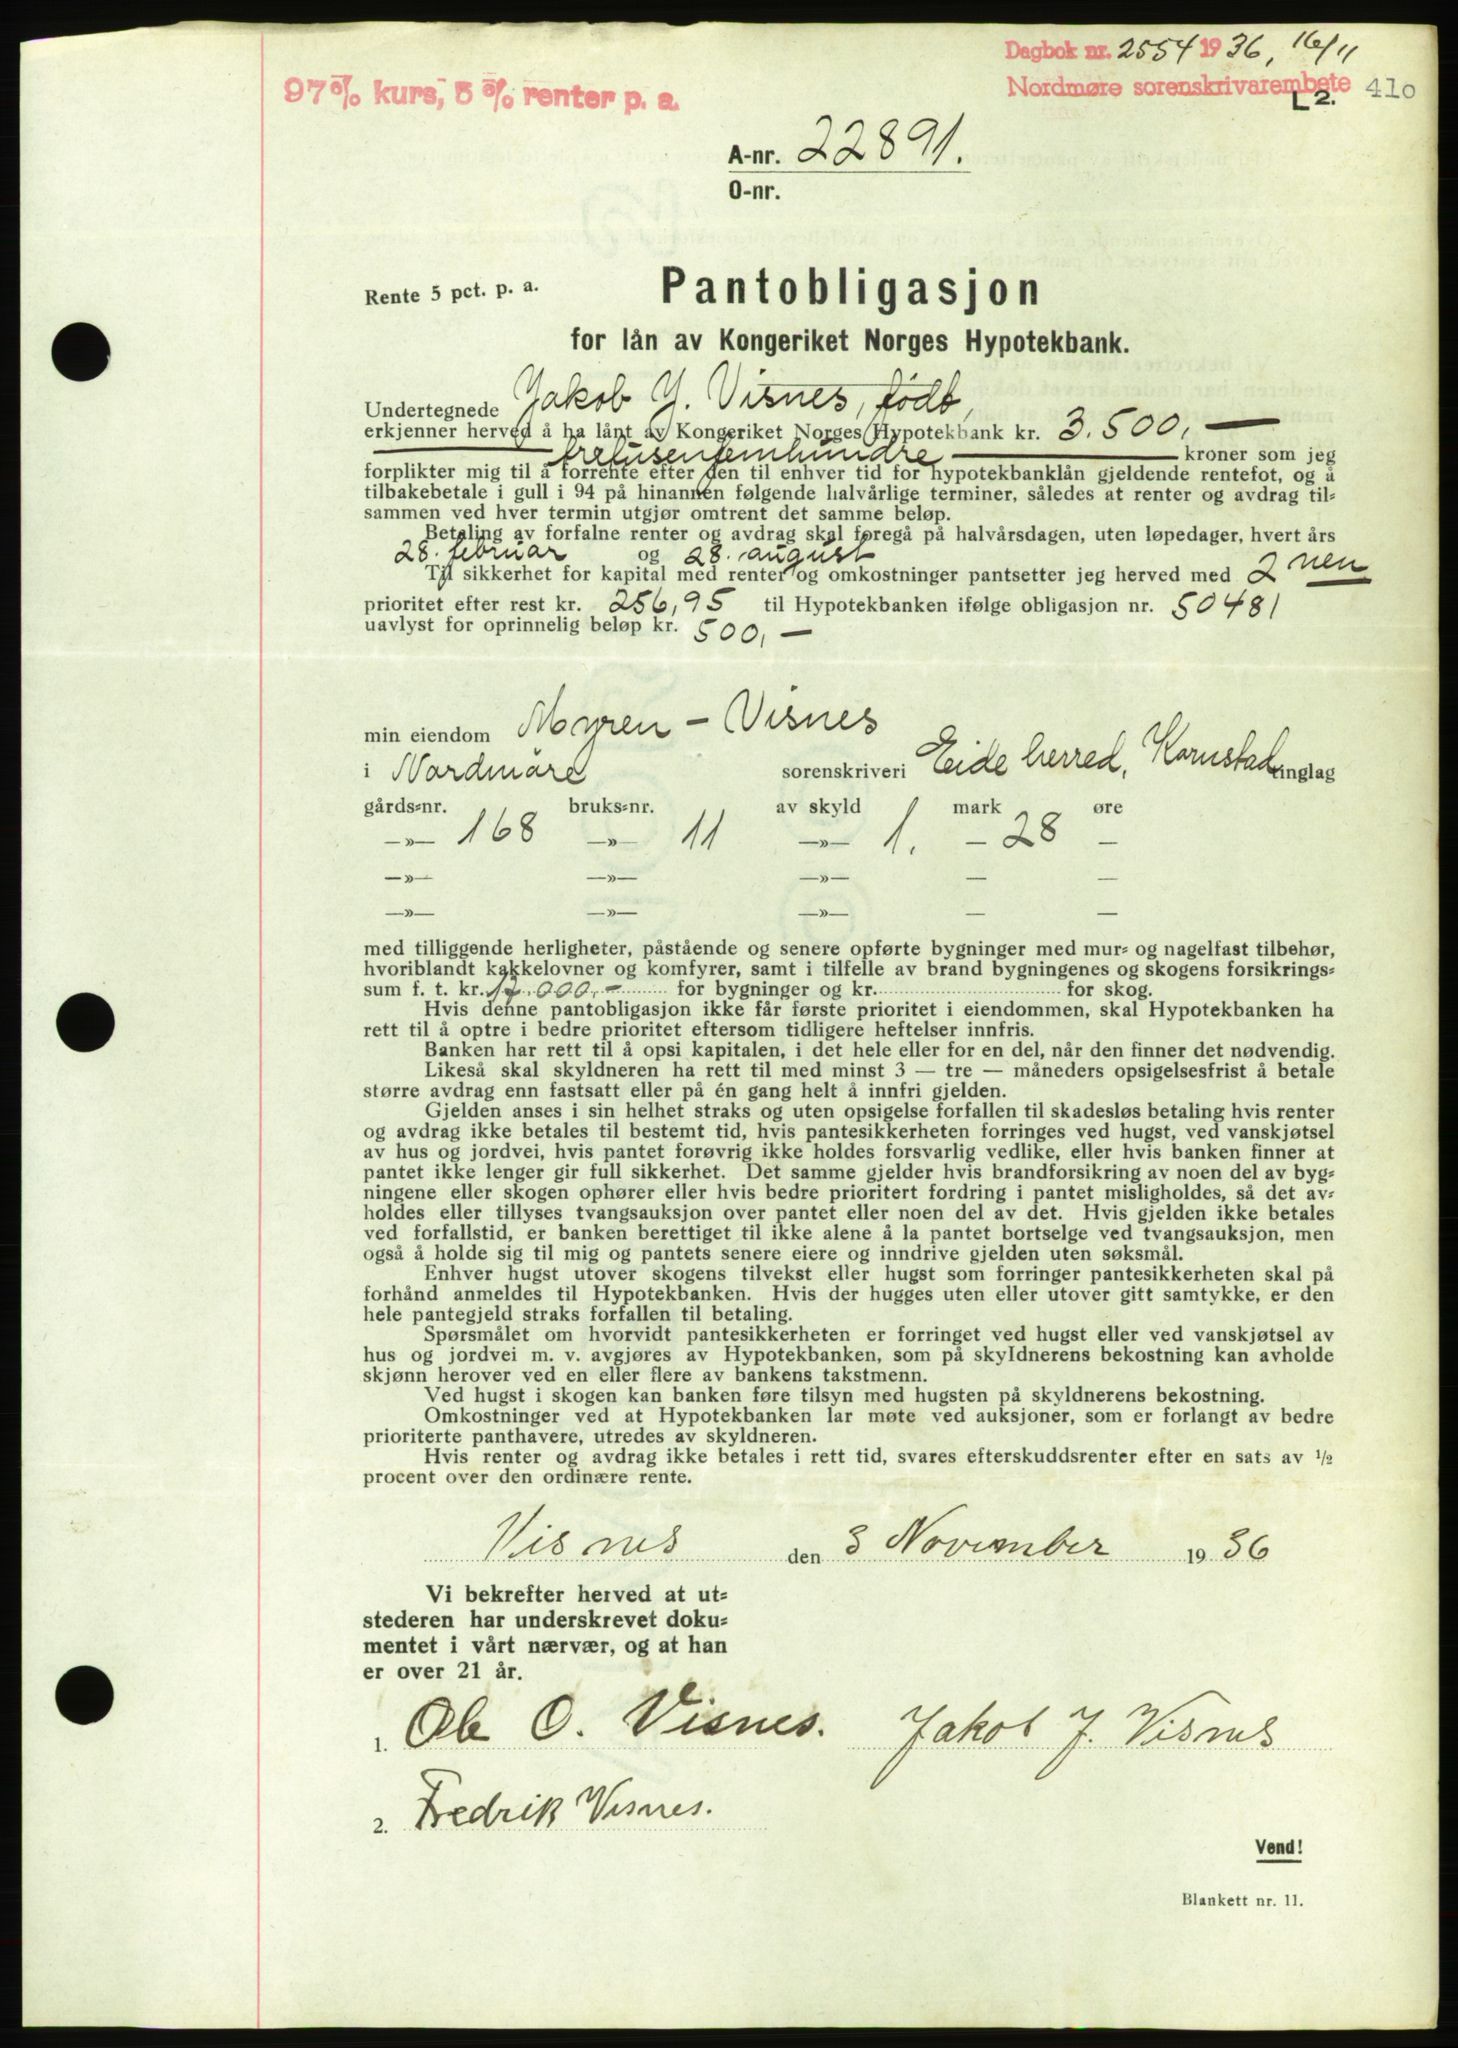 Dagbok nr. 2554 1936, 16/11
97% kurs, 5% renter p. a.
Nordmøre sorenskrivarembete 410
L 2.
A-nr. 22891.
O-nr.
Rente 5 pct. p. a.
Pantobligasjon
for lån av Kongeriket Norges Hypotekbank.
Undertegnede Jakob J. Visnes, født,
erkjenner herved å ha lånt av Kongeriket Norges Hypotekbank kr. 3.500,—
tretusenfemhundre kroner som jeg
forplikter mig til å forrente efter den til enhver tid for hypotekbanklån gjeldende rentefot, og å
tilbakebetale i gull i 94 på hinannen følgende halvårlige terminer, således at renter og avdrag til=
sammen ved hver termin utgjør omtrent det samme beløp.
Betaling av forfalne renter og avdrag skal foregå på halvårsdagen, uten løpedager, hvert års
28. februar og 28. august
Til sikkerhet for kapital med renter og omkostninger pantsetter jeg herved med 2 nen
prioritet efter rest kr. 256,95 til Hypotekbanken ifølge obligasjon nr. 50481
uavlyst for oprinnelig beløp kr. 500,—
min eiendom Myren - Visnes
i Nordmøre sorenskriveri Eide herred, Kornstad tinglag
gårds=nr. bruks=nr. av skyld mark øre
—»— 168 —»— 11 —»— 1. — 28 —
—»— —»— —»— — —
—»— —»— —»— — —
med tilliggende herligheter, påstående og senere opførte bygninger med mur= og nagelfast tilbehør,
hvoriblandt kakkelovner og komfyrer, samt i tilfelle av brand bygningenes og skogens forsikrings=
sum f. t. kr. 12.000,— for bygninger og kr. for skog.
Hvis denne pantobligasjon ikke får første prioritet i eiendommen, skal Hypotekbanken ha
rett til å optre i bedre prioritet eftersom tidligere heftelser innfris.
Banken har rett til å opsi kapitalen, i det hele eller for en del, når den finner det nødvendig.
Likeså skal skyldneren ha rett til med minst 3 — tre — måneders opsigelsesfrist å betale
større avdrag enn fastsatt eller på én gang helt å innfri gjelden.
Gjelden anses i sin helhet straks og uten opsigelse forfallen til skadesløs betaling hvis renter
og avdrag ikke betales til bestemt tid, hvis pantesikkerheten forringes ved hugst, ved vanskjøtsel
av hus og jordvei, hvis pantet forøvrig ikke holdes forsvarlig vedlike, eller hvis banken finner at
pantet ikke lenger gir full sikkerhet. Det samme gjelder hvis brandforsikring av noen del av byg=
ningene eller skogen ophører eller hvis bedre prioritert fordring i pantet misligholdes, så det av=
holdes eller tillyses tvangsauksjon over pantet eller noen del av det. Hvis gjelden ikke betales
ved forfallstid, er banken berettiget til ikke alene å la pantet bortselge ved tvangsauksjon, men
også å holde sig til mig og pantets senere eiere og inndrive gjelden uten søksmål.
Enhver hugst utover skogens tilvekst eller hugst som forringer pantesikkerheten skal på
forhånd anmeldes til Hypotekbanken. Hvis der hugges uten eller utover gitt samtykke, er den
hele pantegjeld straks forfallen til betaling.
Spørsmålet om hvorvidt pantesikkerheten er forringet ved hugst eller ved vanskjøtsel av
hus og jordvei m. v. avgjøres av Hypotekbanken, som på skyldnerens bekostning kan avholde
skjønn herover ved en eller flere av bankens takstmenn.
Ved hugst i skogen kan banken føre tilsyn med hugsten på skyldnerens bekostning.
Omkostninger ved at Hypotekbanken lar møte ved auksjoner, som er forlangt av bedre
prioriterte panthavere, utredes av skyldneren.
Hvis renter og avdrag ikke betales i rett tid, svares efterskuddsrenter efter en sats av 1/2
procent over den ordinære rente.
Visnes den 3 November 1936
Vi bekrefter herved at ut=
stederen har underskrevet doku=
mentet i vårt nærvær, og at han
er over 21 år.
1. Ole O. Visnes. Jakob J. Visnes
2. Fredrik Visnes.
Vend!
Blankett nr. 11.